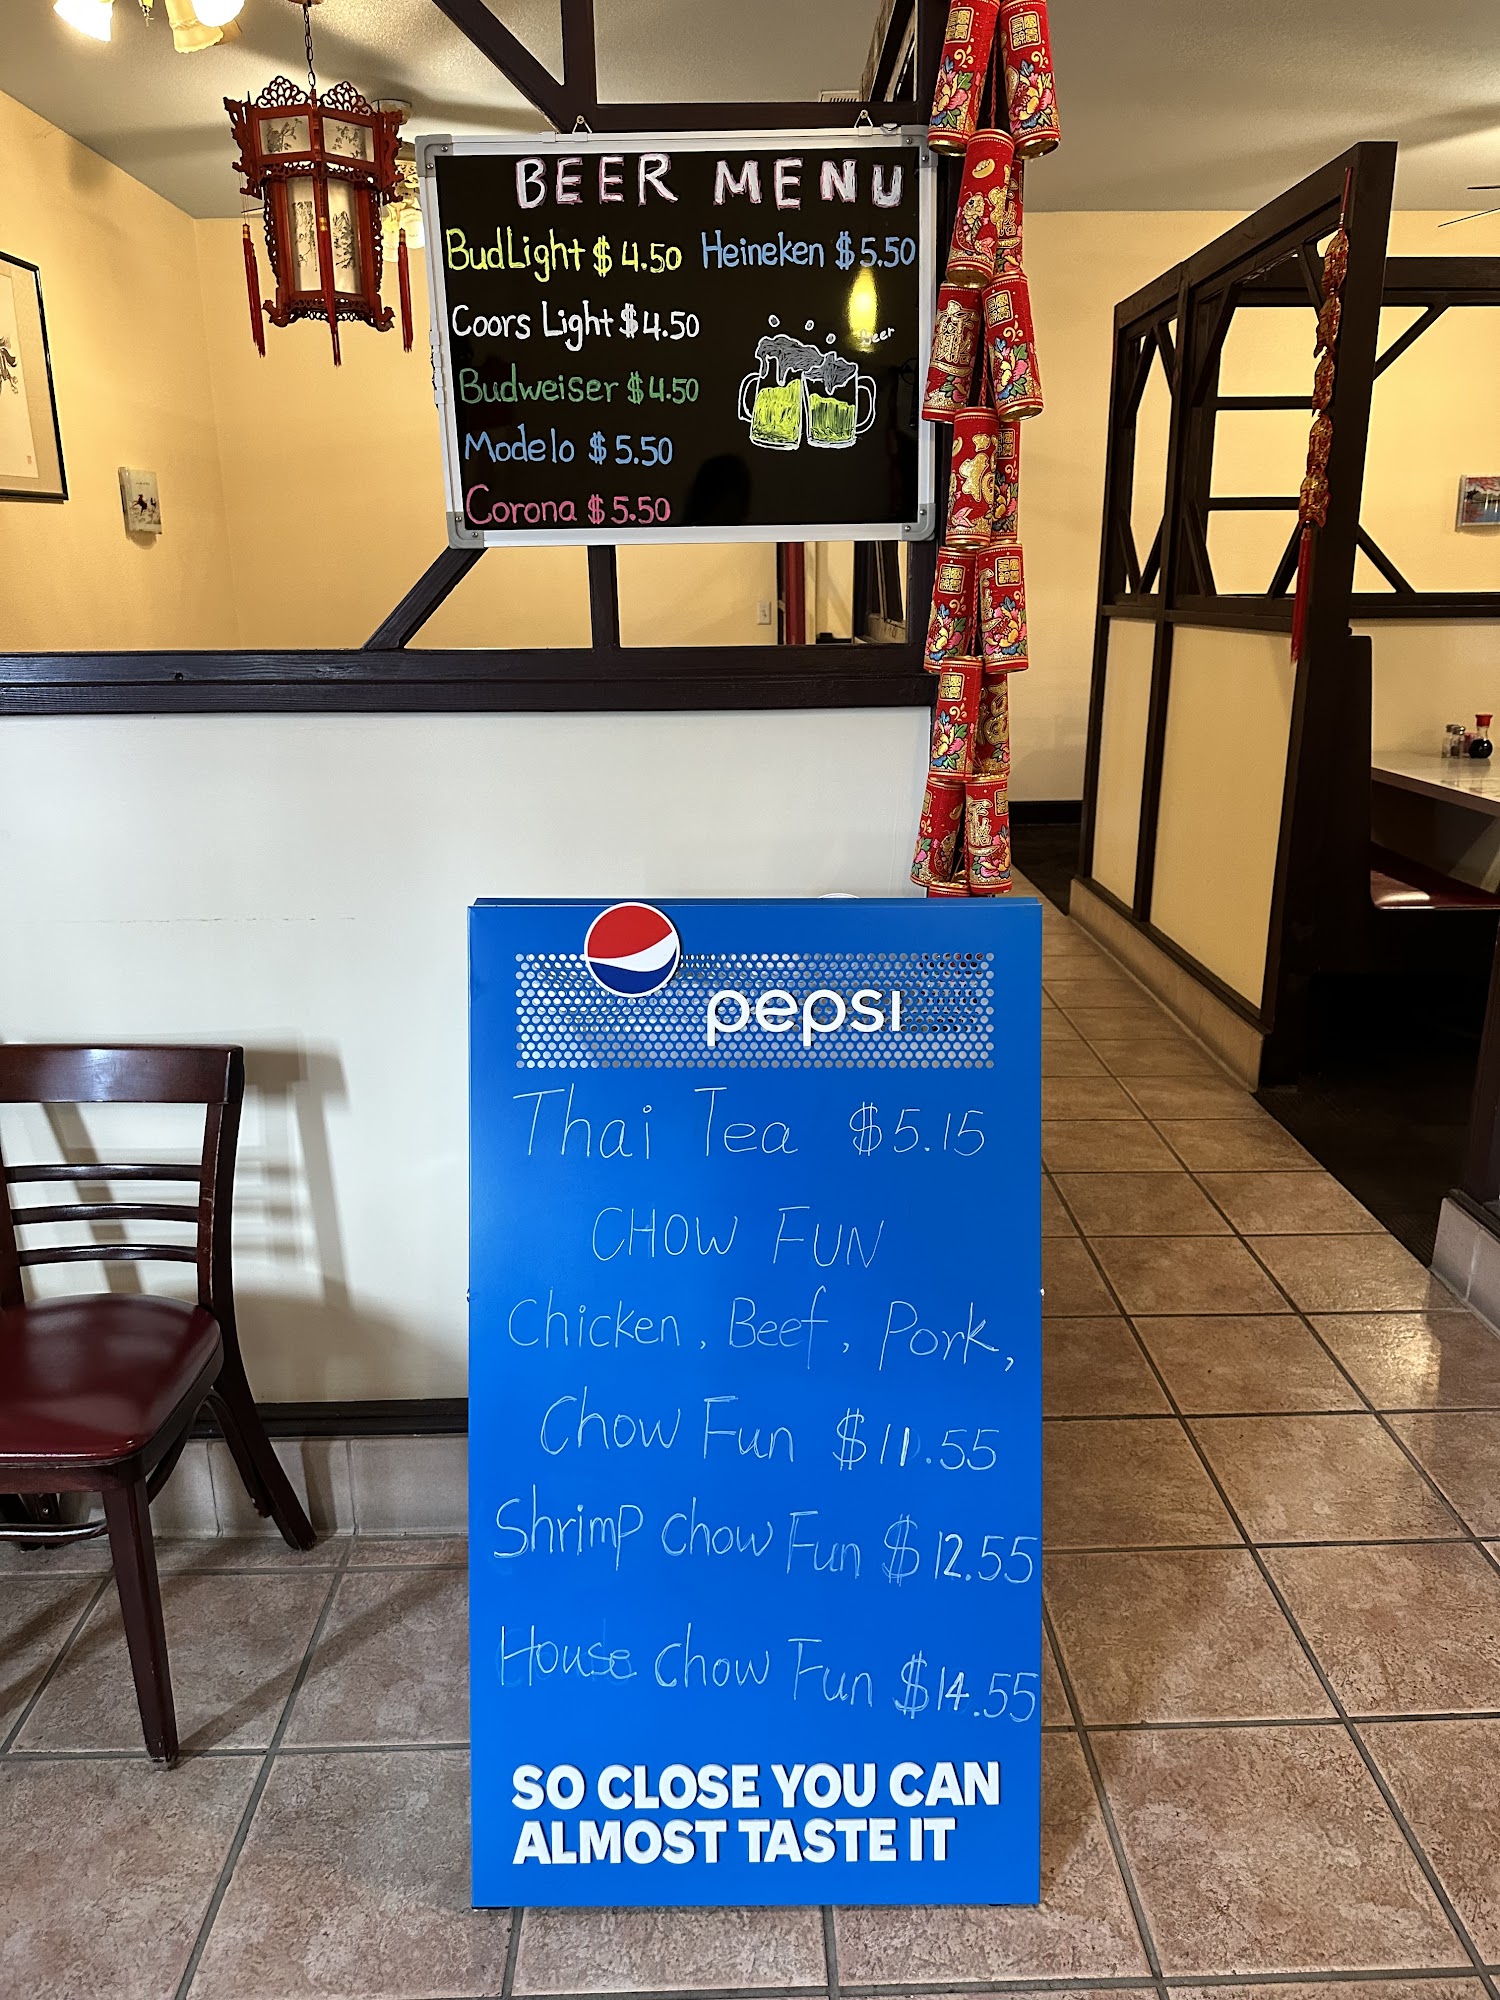 BEER MENU
BudLight $4.50 Heineken $5.50
Coors Light $4.50
Beer
Budweiser $4.50
Modelo $5.50
Corona $5.50
pepsi
Thai Tea $5.15
CHOW FUN
Chicken, Beef, Pork,
Chow Fun $11.55
Shrimp Chow Fun $12.55
House Chow Fun $14.55
SO CLOSE YOU CAN
ALMOST TASTE IT